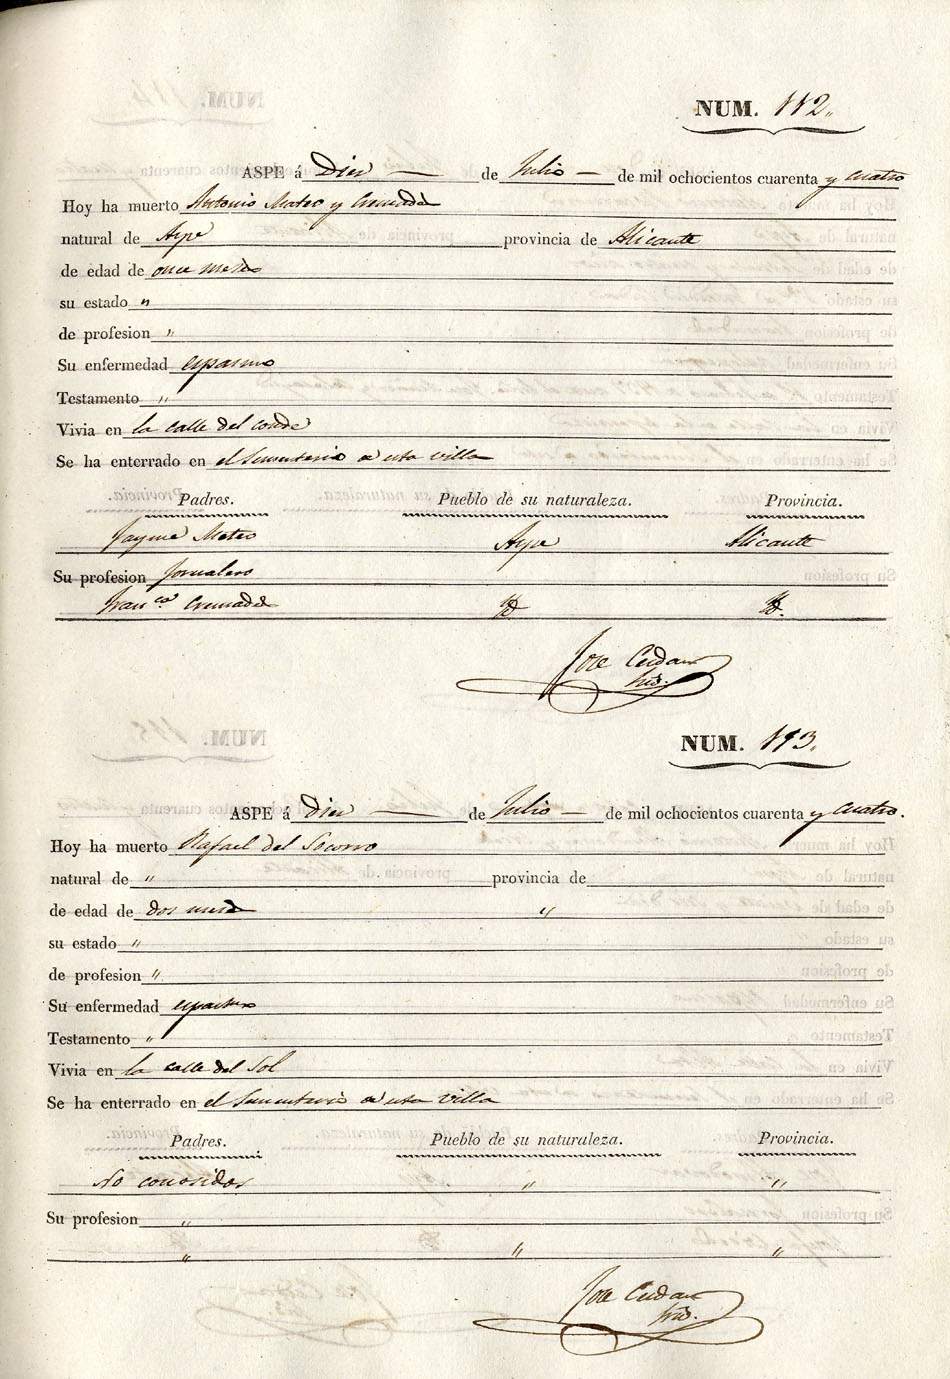 NUM. 112.
ASPE á Diez de Julio de mil ochocientos cuarenta y cuatro
Hoy ha muerto Antonio Mateo y Cremades
natural de Aspe provincia de Alicante
de edad de once meses
su estado "
de profesion "
Su enfermedad espasmo
Testamento "
Vivia en la calle del conde
Se ha enterrado en el Sementerio de esta villa
Padres. Pueblo de su naturaleza. Provincia.
Jayme Mateo Aspe Alicante
Su profesion Jornalero
Fran.ca Cremades Yd Yd.
Jose
NUM. 113.
ASPE á Diez de Julio de mil ochocientos cuarenta y cuatro.
Hoy ha muerto Rafael del Socorro
natural de " provincia de
de edad de dos meses "
su estado "
de profesion "
Su enfermedad espasmo
Testamento "
Vivia en la calle del Sol
Se ha enterrado en el Sementerio de esta villa
Padres. Pueblo de su naturaleza. Provincia.
No conosidos " "
Su profesion "
" " "
Jose